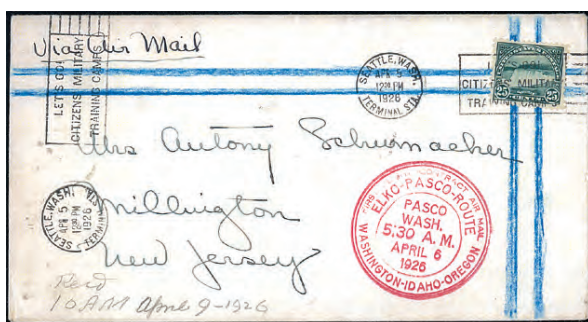 Via Air Mail
LET'S GO!
CITIZENS MILITARY
TRAINING CAMPS
SEATTLE, WASH.
APR 5
12 30 PM
1926
TERMINAL STA.
LET'S GO!
CITIZENS MILITARY
TRAINING CAMPS
25 25
Mrs Antony Schumacher
Millington
New Jersey
SEATTLE, WASH.
APR 5
12 30 PM
1926
TERMINAL STA.
FIRST CONTRACT AIR MAIL
ELKO-PASCO-ROUTE
PASCO
WASH.
5:30 A. M.
APRIL 6
1926
WASHINGTON-IDAHO-OREGON
Recd
10 AM April 9-1926